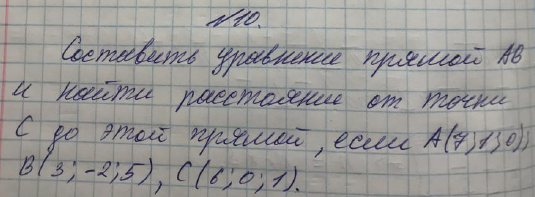 №10.
Составить уравнение прямой AB
и найти расстояние от точки
C до этой прямой, если A(7;1;0),
B(3;-2;5), C(6;0;1).